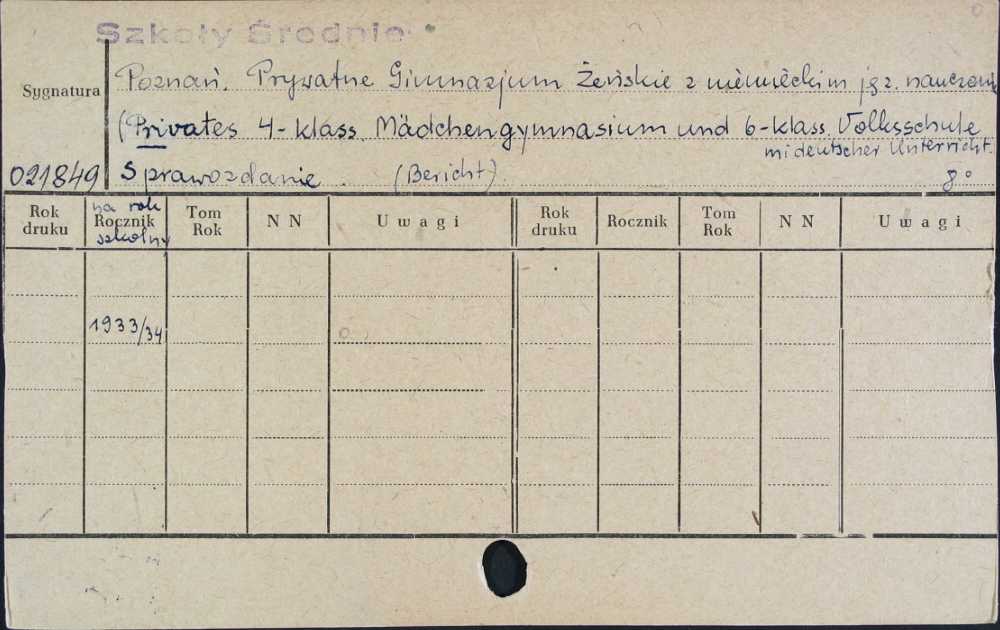 Szkoły Średnie
Sygnatura
Poznań. Prywatne Gimnazjum Żeńskie z niemieckim jęz. nauczania
(Privates 4-klass. Mädchengymnasium und 6-klass. Volksschule
mi deutscher Unterricht.
021849 Sprawozdanie. (Bericht) 8°
Rok druku na rok Rocznik szkolny Tom Rok N N Uwagi Rok druku Rocznik Tom Rok N N Uwagi
1933/34